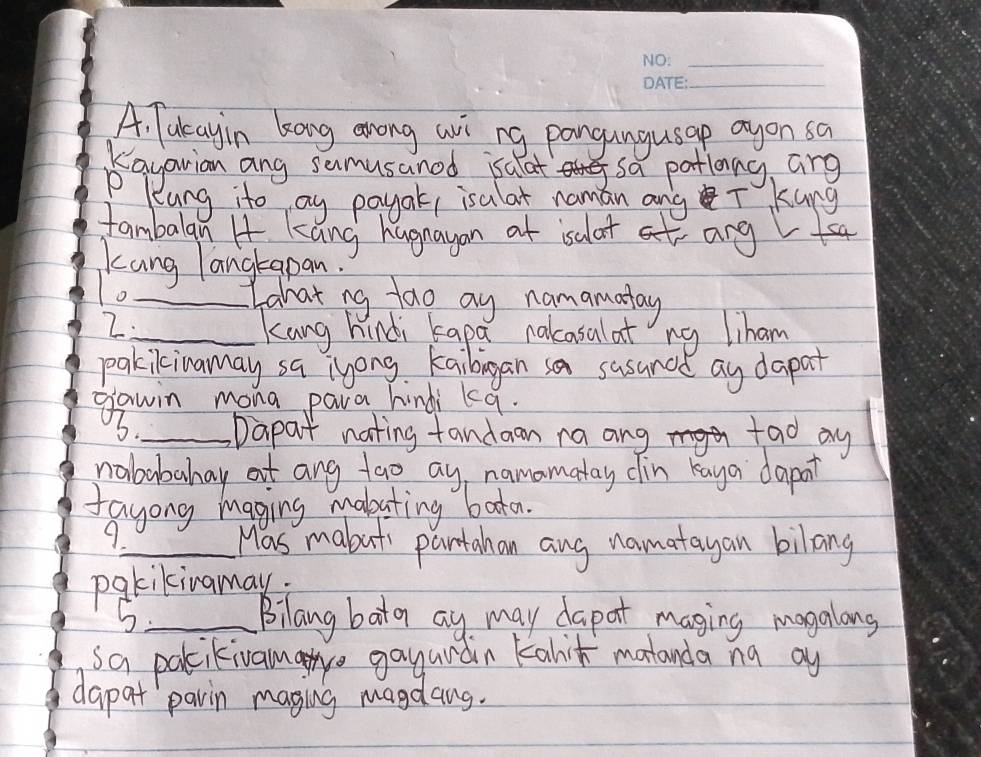 NO:
DATE:
A. Tukayin kong anong uri ng pangungusap ayon sa
Kayarian ang sumusunod isulat sa patlang ang
P kung ito ay payak, isulat naman ang T kung
tambalan H kung hugnayan at isulat ang L
kung langkapan.
1. Lahat ng tao ay namamatay
2. Kung hindi kapa nakasulat ng liham
pakikiramay sa iyong kaibigan sa susunod ay dapat
gawin mona para hindi ka.
3. Dapat nating tandaan na ang tao ay
nabubuhay at ang tao ay namamatay din kaya dapat
tayong maging mabuting bata.
4. Mas mabuti puntahan ang namatayan bilang
pakikiramay.
5. Bilang bata ay may dapat maging magalang
sa pakikiramay gayundin kahit matanda na ay
dapat parin maging magalang.